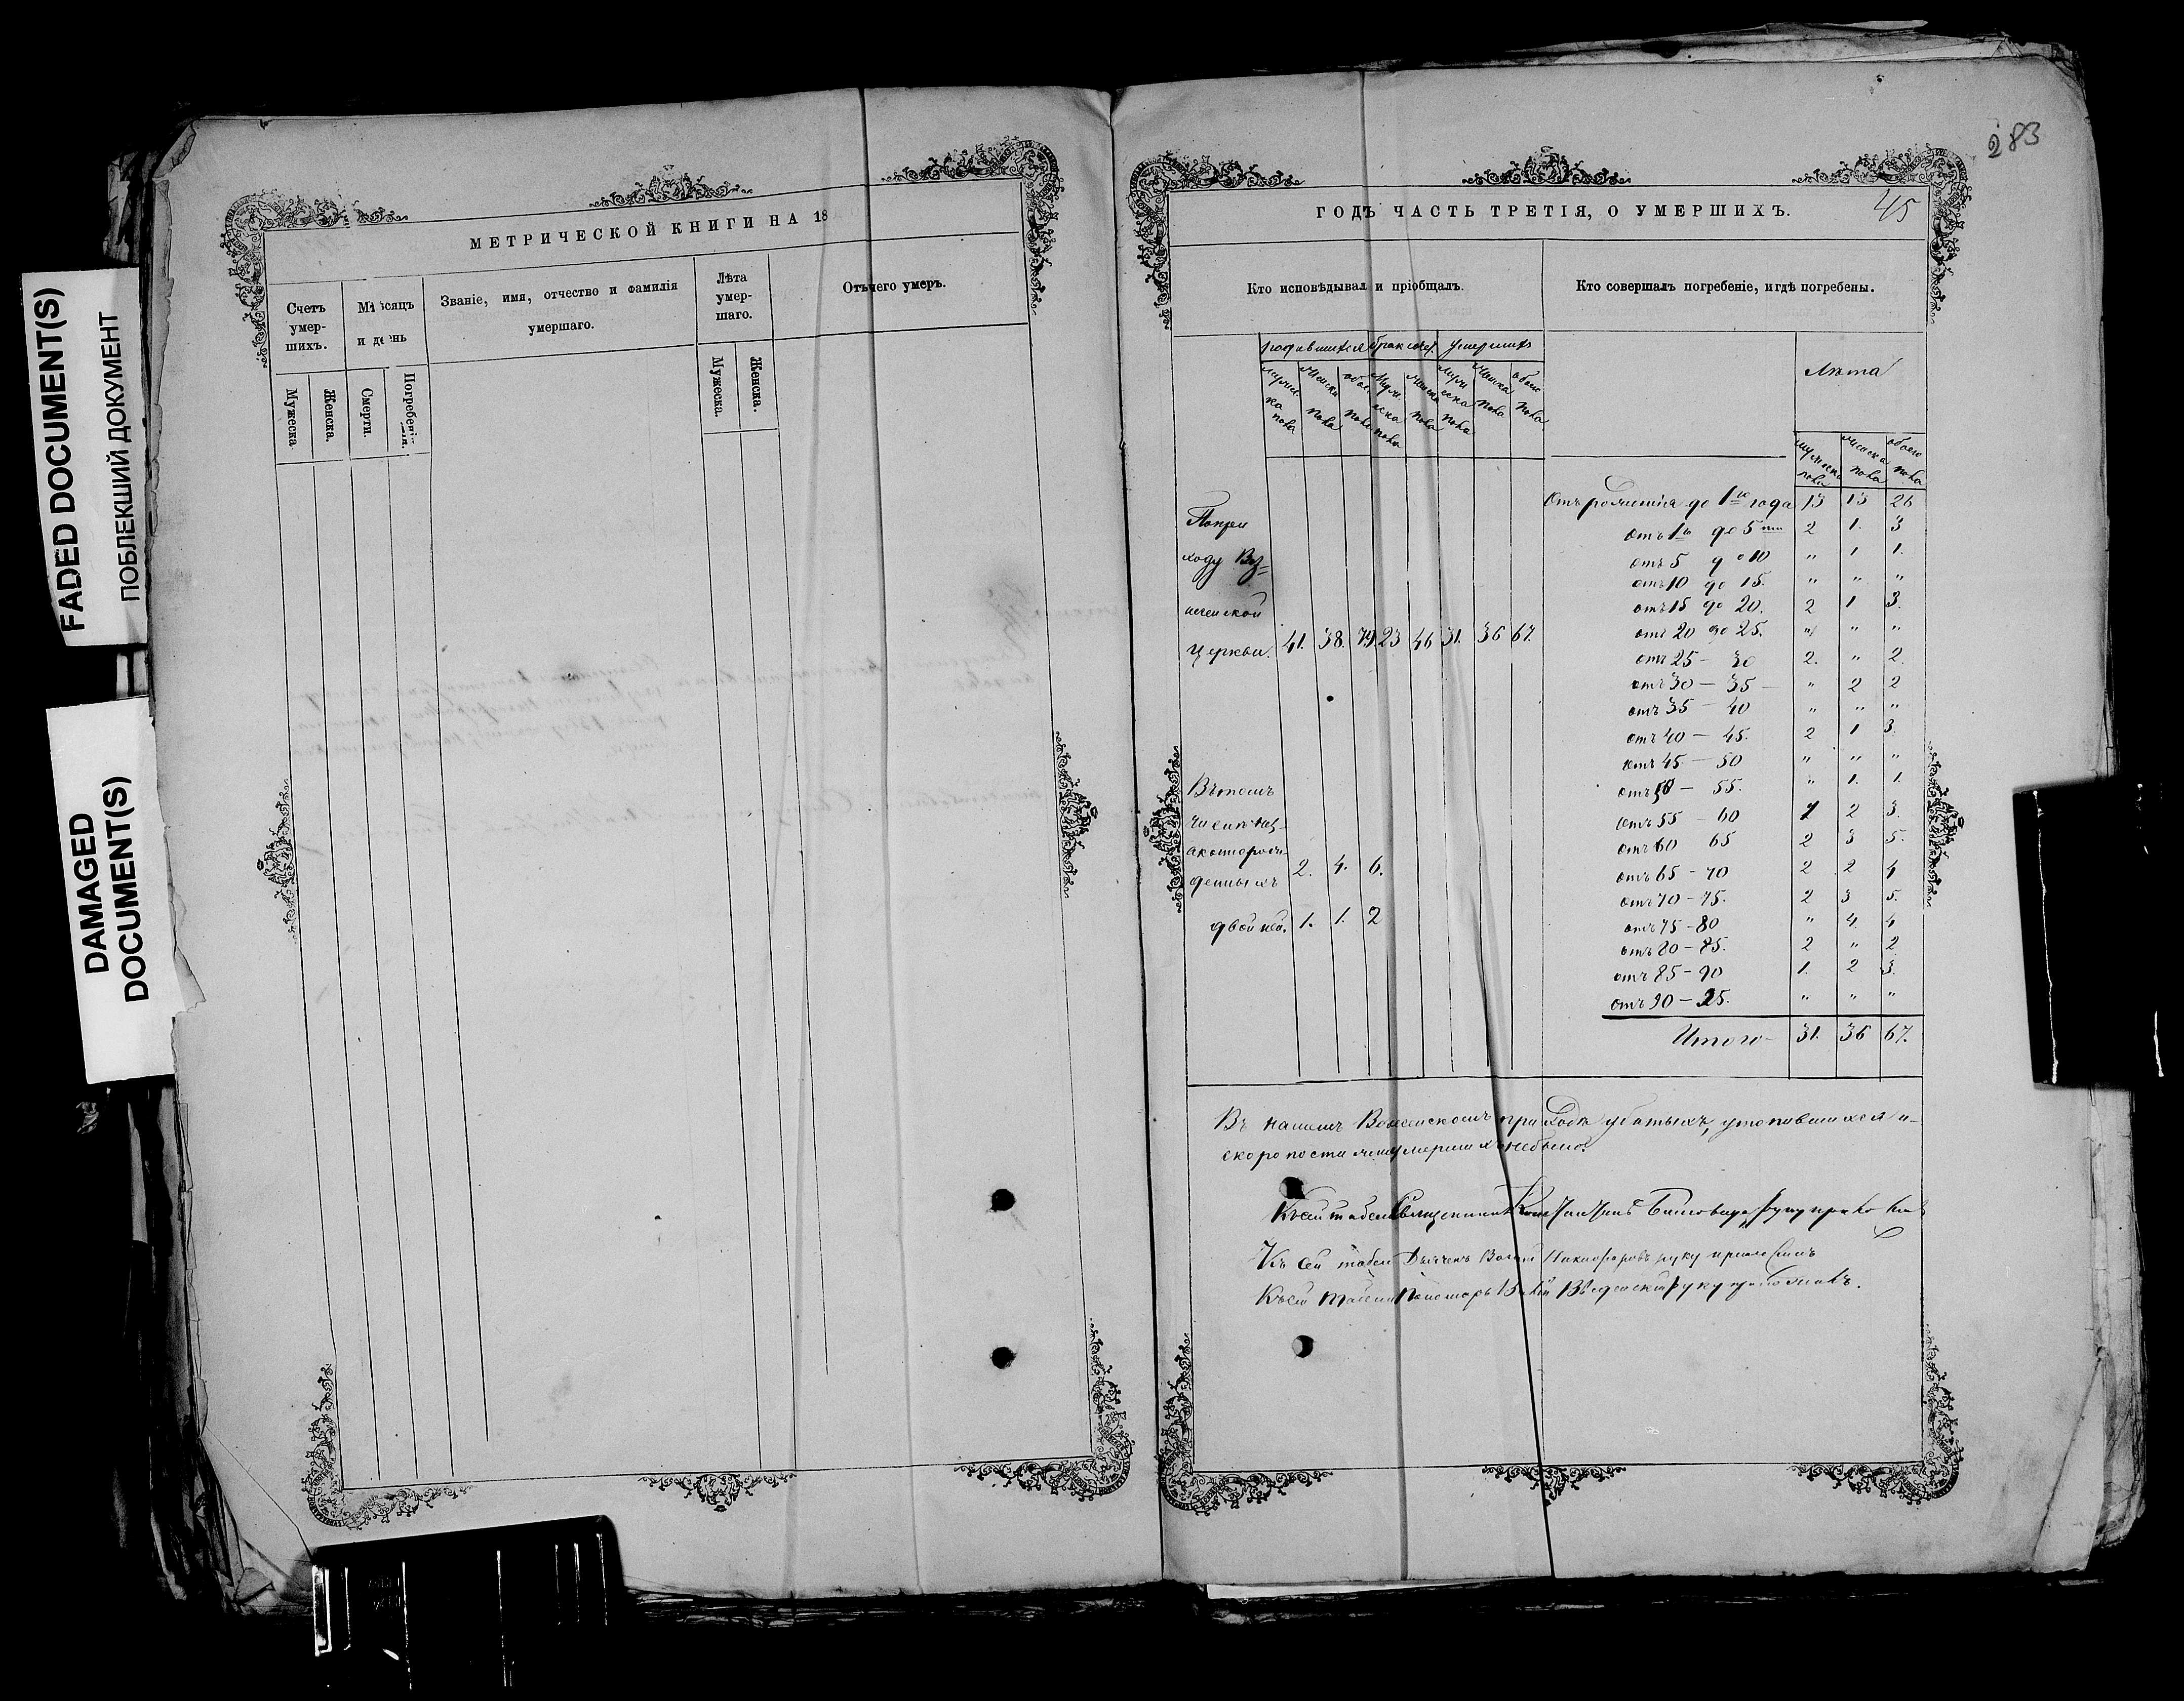 FADED DOCUMENT(S)
ПОБЛЕКШИЙ ДОКУМЕНТ
DAMAGED
DOCUMENT(S)
МЕТРИЧЕСКОЙ КНИГИ НА 18
Счетъ
умер-
шихъ.
Мѣсяцъ
и день
Званіе, имя, отчество и фамилія
умершаго.
Лѣта
умер-
шаго.
Отъ чего умеръ.
Мужеска
Женска.
Смерти.
Погребенія.
Мужеска.
Женска.
283
45
ГОДЪ ЧАСТЬ ТРЕТІЯ, О УМЕРШИХЪ.
Кто исповѣдывалъ и пріобщалъ.
Кто совершалъ погребеніе, и гдѣ погребены.
родившихся брак соч. умершихъ
мужеска пола женска пола обоего пола мужеска пола женска пола мужеска пола женска пола обоего пола
По при
ходу
церкви. 41. 38. 79. 23 46 31. 36 67.
Въ томъ
числѣ нез-
аконорож-
денныхъ 2. 4. 6.
двойней. 1. 1. 2
Лѣта
мужеска пола женска пола обоего пола
Отъ рожденія до 1го года 13 13 26
отъ 1го до 5ти 2 1. 3
отъ 5 до 10 " 1 1.
отъ 10 до 15. " " "
отъ 15 до 20. 2 1 3.
отъ 20 до 25. " " "
отъ 25 — 30 2. " 2.
отъ 30 — 35 — " 2 2
отъ 35 — 40 " " "
отъ 40 — 45. 2 1 3.
отъ 45 — 50 " " "
отъ 50 — 55. " 1. 1.
отъ 55 — 60 1 2 3.
отъ 60 65 2 3 5.
отъ 65 - 70 2 2 4
отъ 70 - 75. 2 3 5.
отъ 75 - 80 " 4. 4
отъ 80 - 85. 2 " 2
отъ 85 - 90 1. 2 3.
отъ 90 - 95. " " "
Итого - 31. 36 67.
Въ нашемъ приходѣ убитыхъ, утопившихся и
скоропостижно умершихъ не было.
Къ сей табели Священникъ руку приложилъ
Къ сей табели Дьячекъ Никифоровъ руку приложилъ
Къ сей табели Пономарь Введенскій руку приложилъ.